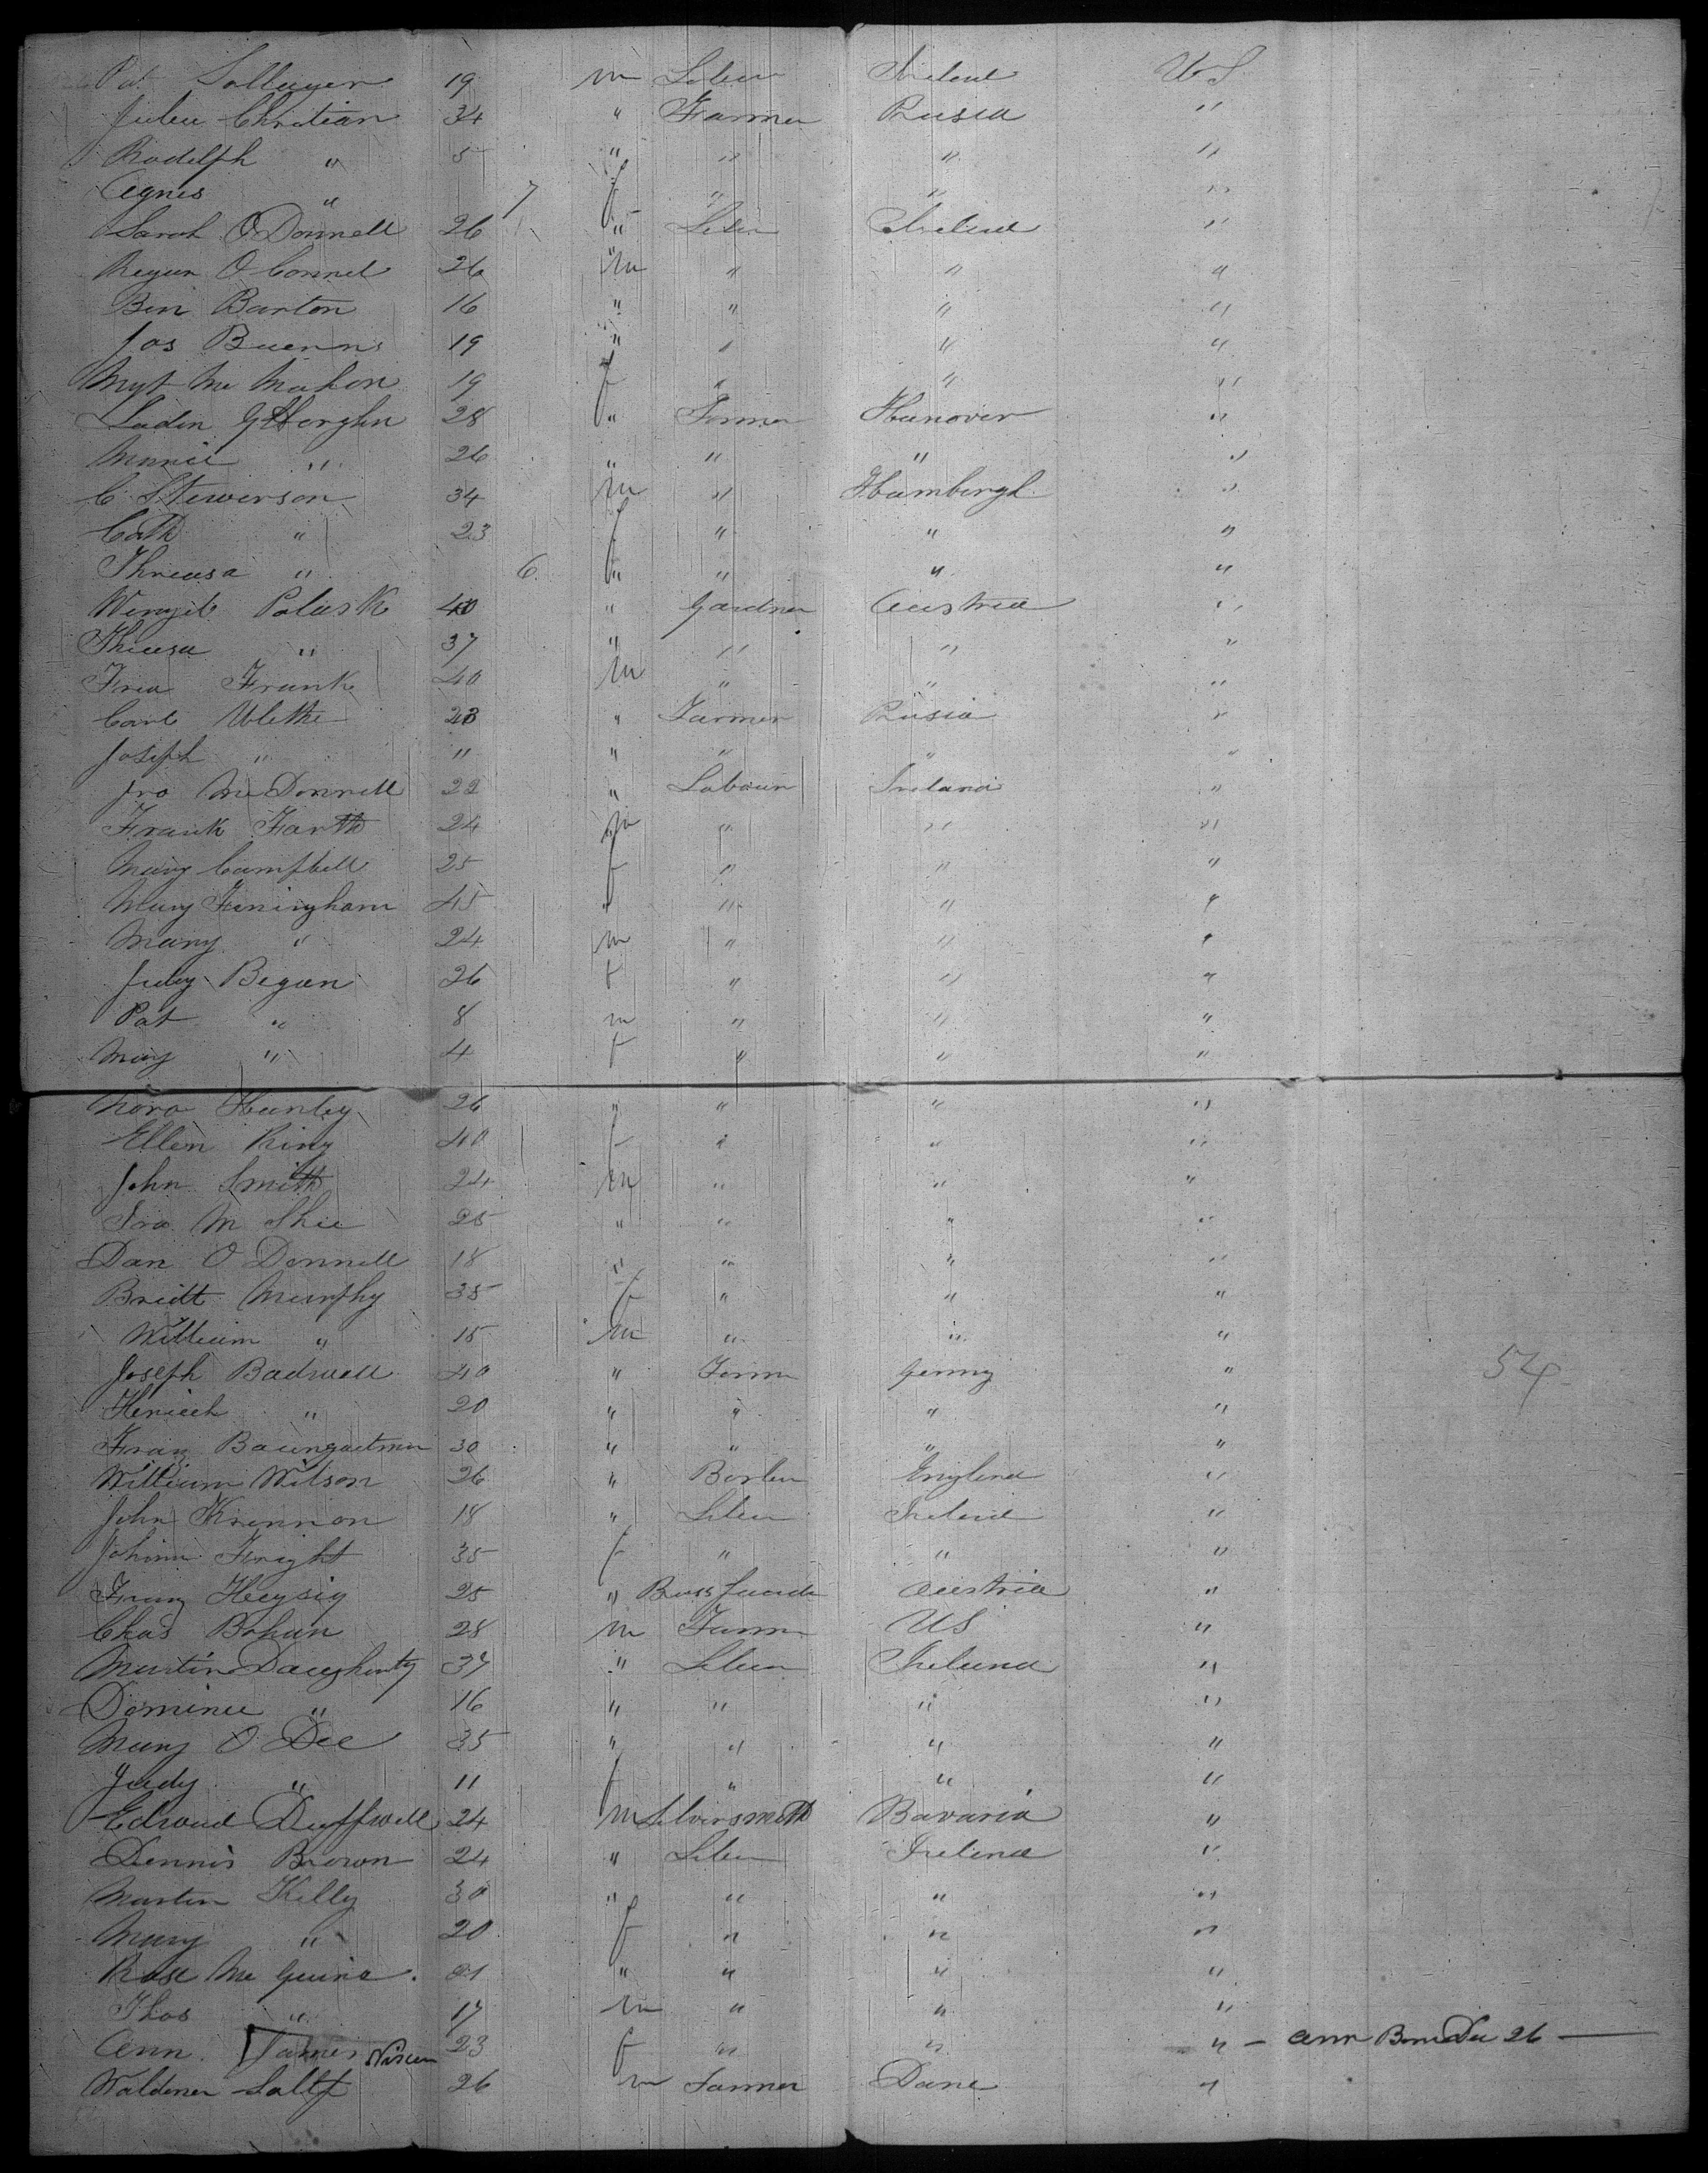 Pat 19 m Laber Ireland U S
Juleu Christian 34 " Farmer Rusia "
Rodelph " 5 " " " "
Agnes " 7 f " " "
Sarah O Donnell 26 " Laber Ireland "
Regan O Connel 26 m " " "
Ben Barton 16 " " " "
Jos Buerns 19 " " " "
Mgt Mc Mahon 19 f " " "
28 " Farmer Hanover "
Marie " 26 " " " "
C Stewerson 34 m " Hamburgh "
Cath " 23 f " " "
Threasa " 6 " " " "
Polask 40 " Gardner Austria "
Thresa " 37 " " " "
Fred Frank 40 m " " "
Carl Ulethe 23 " Farmer Rusia "
Joseph " 11 " " " "
Jno McDonnell 22 " Labour Ireland "
Frank Farth 24 m " " "
Mary Campbell 25 f " " "
Mary Feningham 45 " " " "
Mary " 24 m " " "
Judy Began 26 f " " "
Pat " 8 m " " "
Mary " 4 f " " "
Nora Hanley 26 " " " "
Ellen King 40 f " " "
John Smith 24 m " " "
M Shie 25 " " " "
Dan O Donnell 18 " " " "
Bridt Murphy 35 f " " "
William " 15 m " " "
Joseph Badwell 40 " Farmr Germy " 54
Heriech " 20 " " " "
Franz Baumgartner 30 " " " "
William Wilson 26 " England "
John Krennon 18 " Laber Ireland "
Johann Fright 35 f " " "
Franz Heysig 25 " Brass founder Austria "
Chas Bohan 28 m Farmr US "
Martin Daugherty 37 " Laber Ireland "
Dominee " 16 " " " "
Mary O Dee 35 " " " "
Judy " 11 f " " "
Edward Duffwell 24 m Silversmith Bavaria "
Dennis Brown 24 " Laber Ireland "
Martin Kelly 30 " " " "
Mary " 20 f " " "
Rose Mc Guire 21 " " " "
Thos " 17 m " " "
Ann James 23 f " " " – Ann Born Dec 26 —
Waldener Saltz 26 m Farmer Dane "